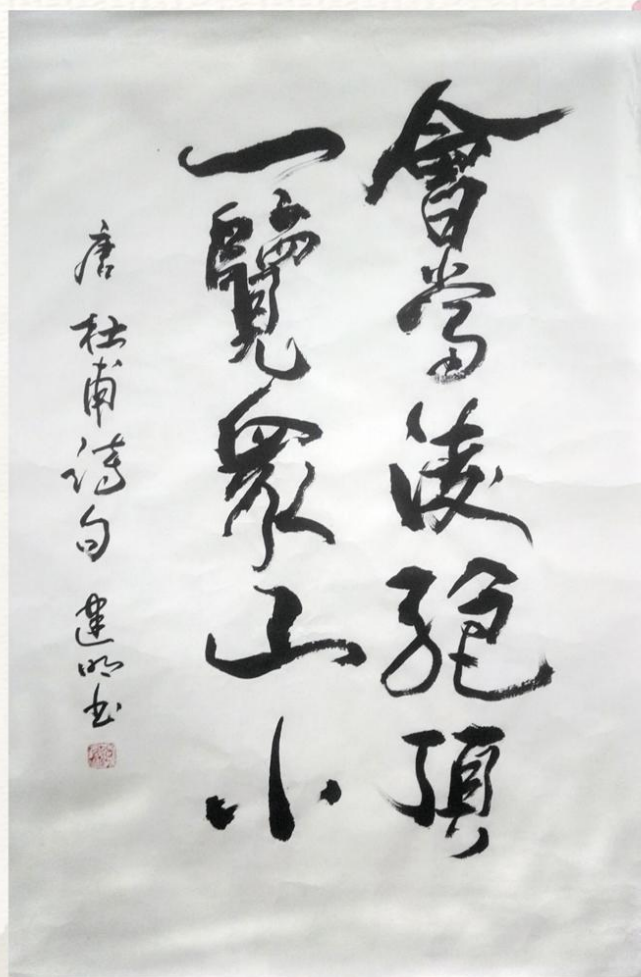 會當凌絕頂
一覽眾山小
唐 杜甫詩句 建明书